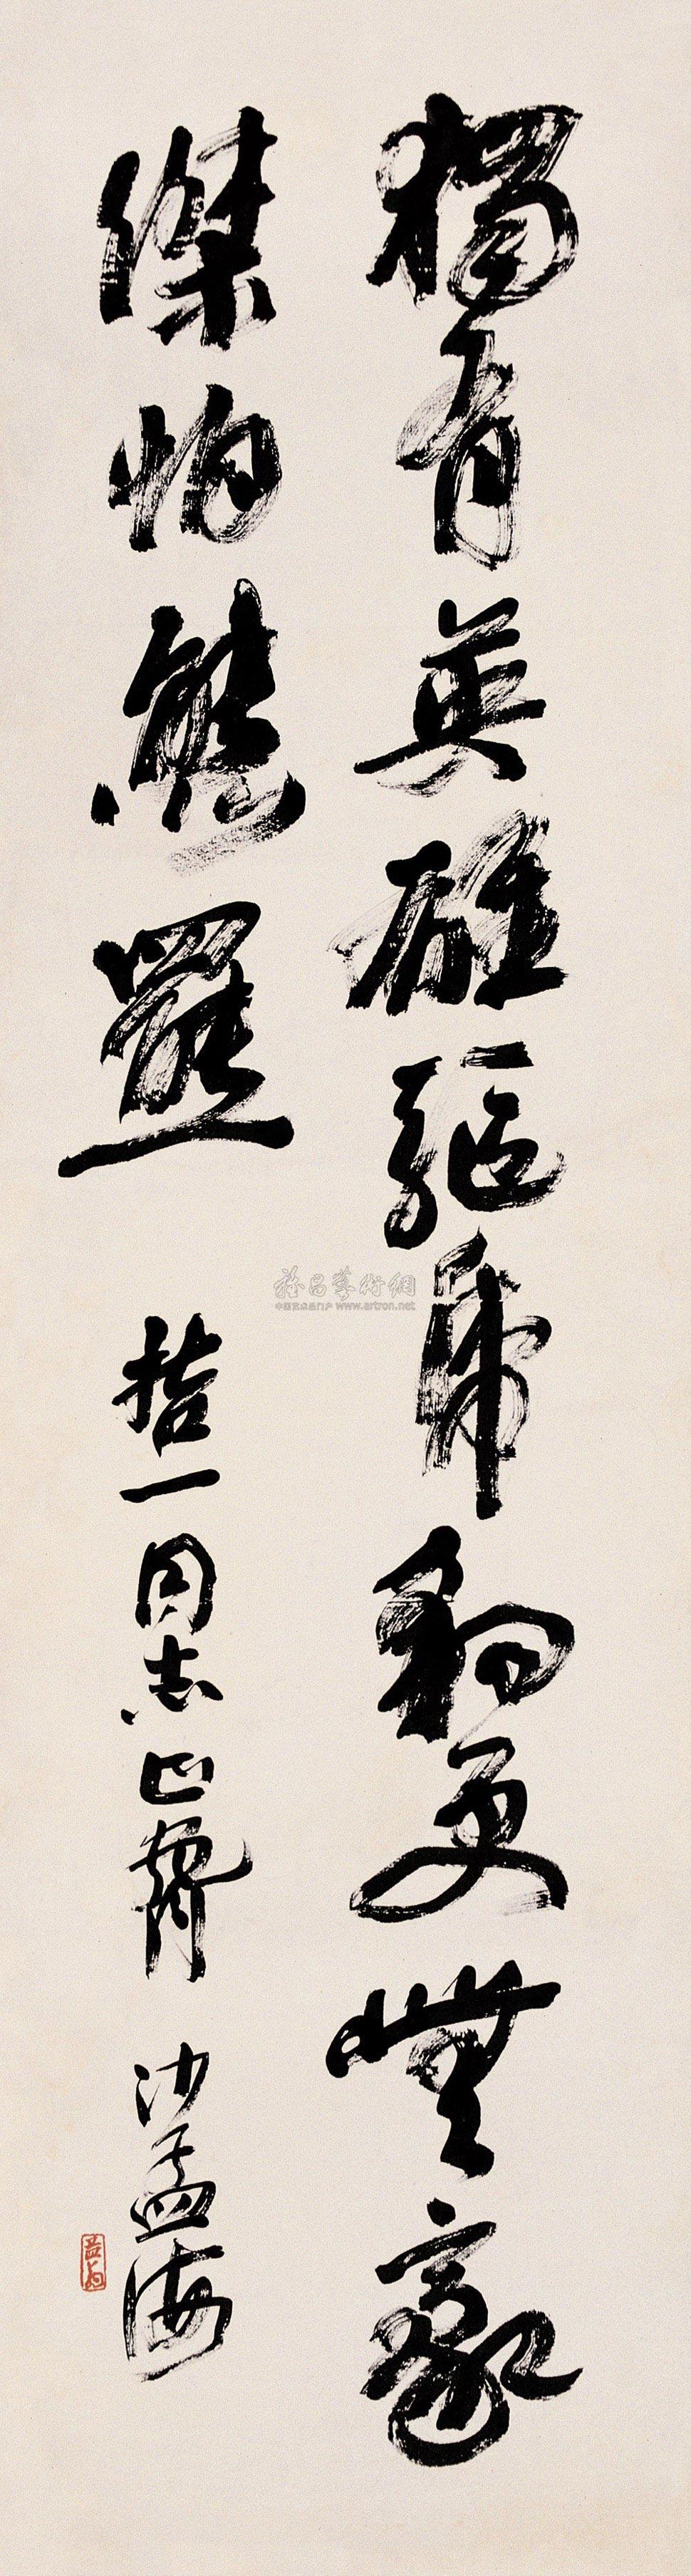 獨有英雄驅虎豹更無豪
傑怕熊羆
喆一同志正腕
沙孟海
雅昌藝術網
中国艺术品门户 www.artron.net